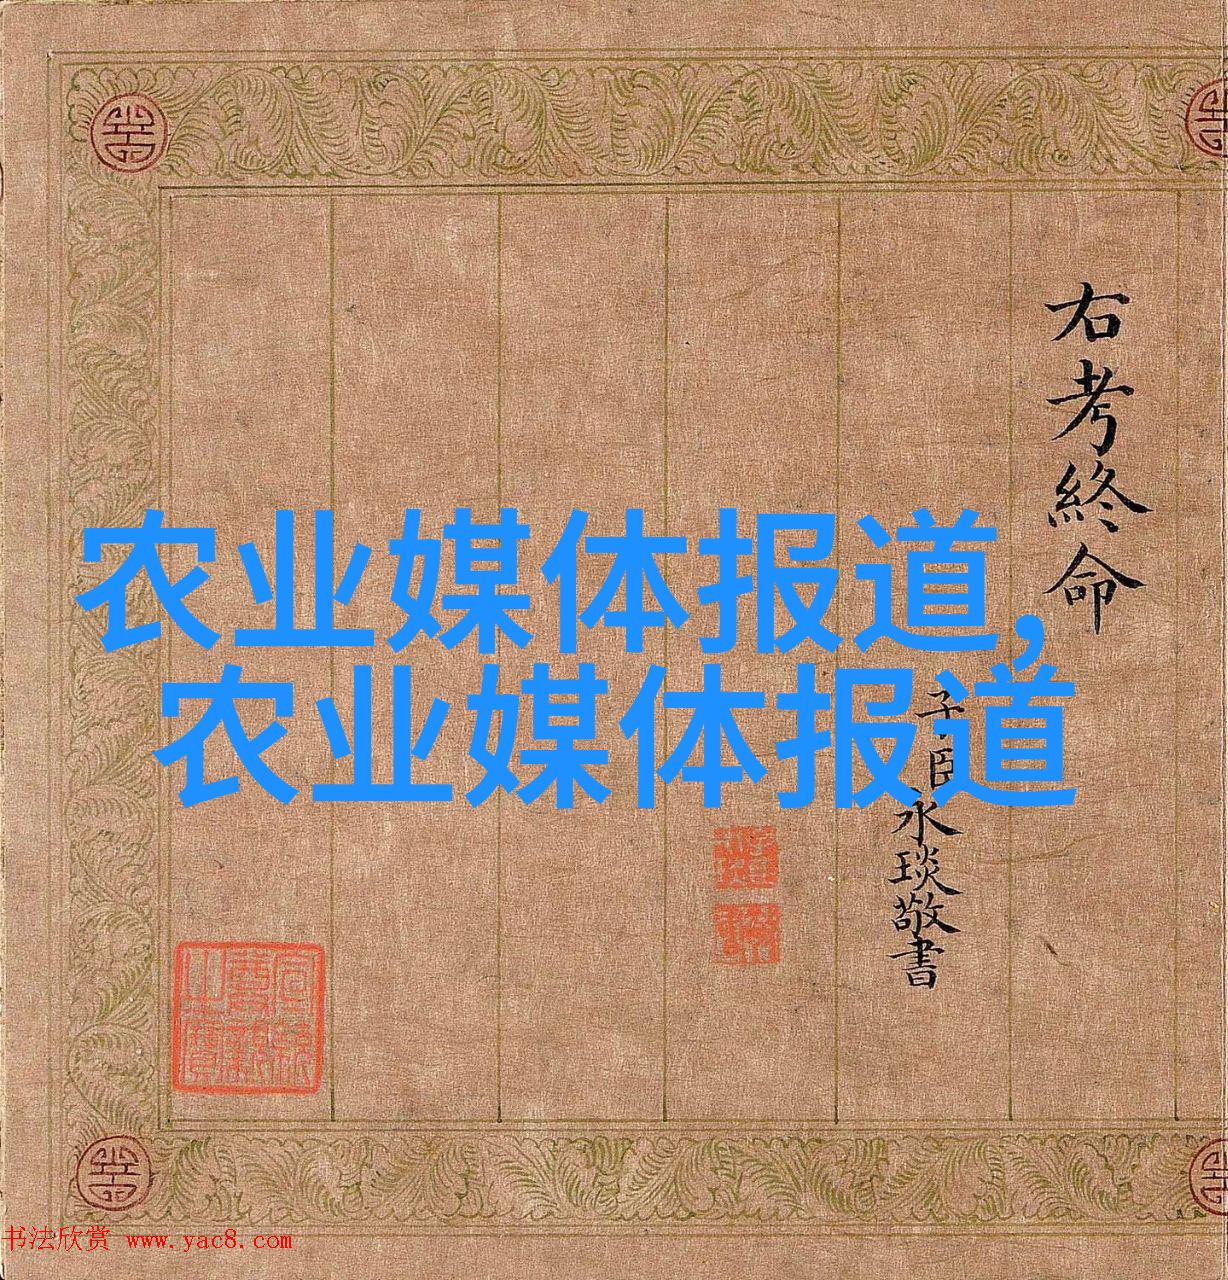 右考終命
子臣永琰敬書
农业媒体报道,
农业媒体报道
宣統御覽之寶
书法欣赏 www.yac8.com